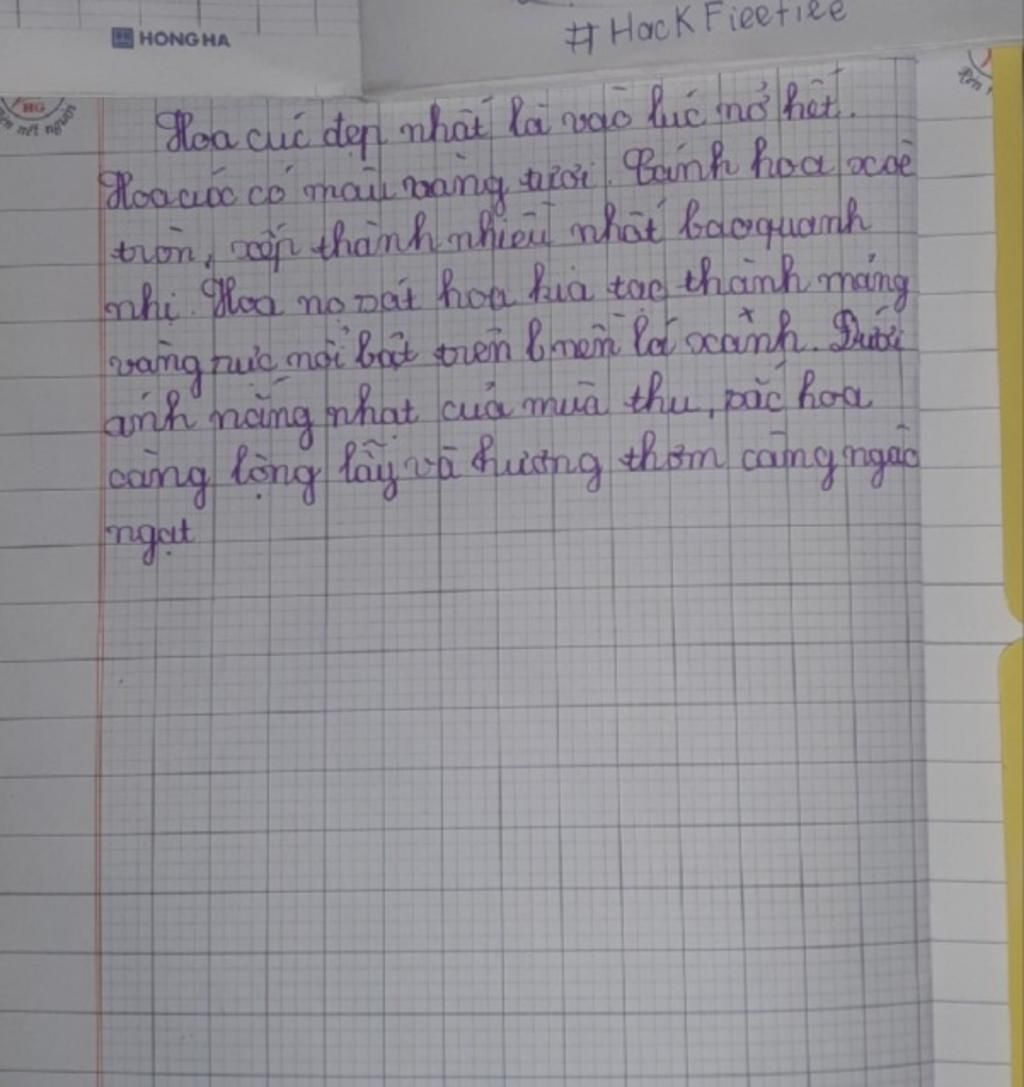 HONG HA
#HackFieefiee
HG
nét người
Hoa cúc đẹp nhất là vào lúc nở hết.
Hoa cúc có màu vàng tươi. Cánh hoa xoè
tròn, xếp thành nhiều nhất bao quanh
nhị. Hoa nọ sát hoa kia tạo thành mảng
vàng rực nổi bật trên nền lá xanh. Dưới
ánh nắng nhạt của mùa thu, sắc hoa
càng lộng lẫy và hương thơm càng ngào
ngạt